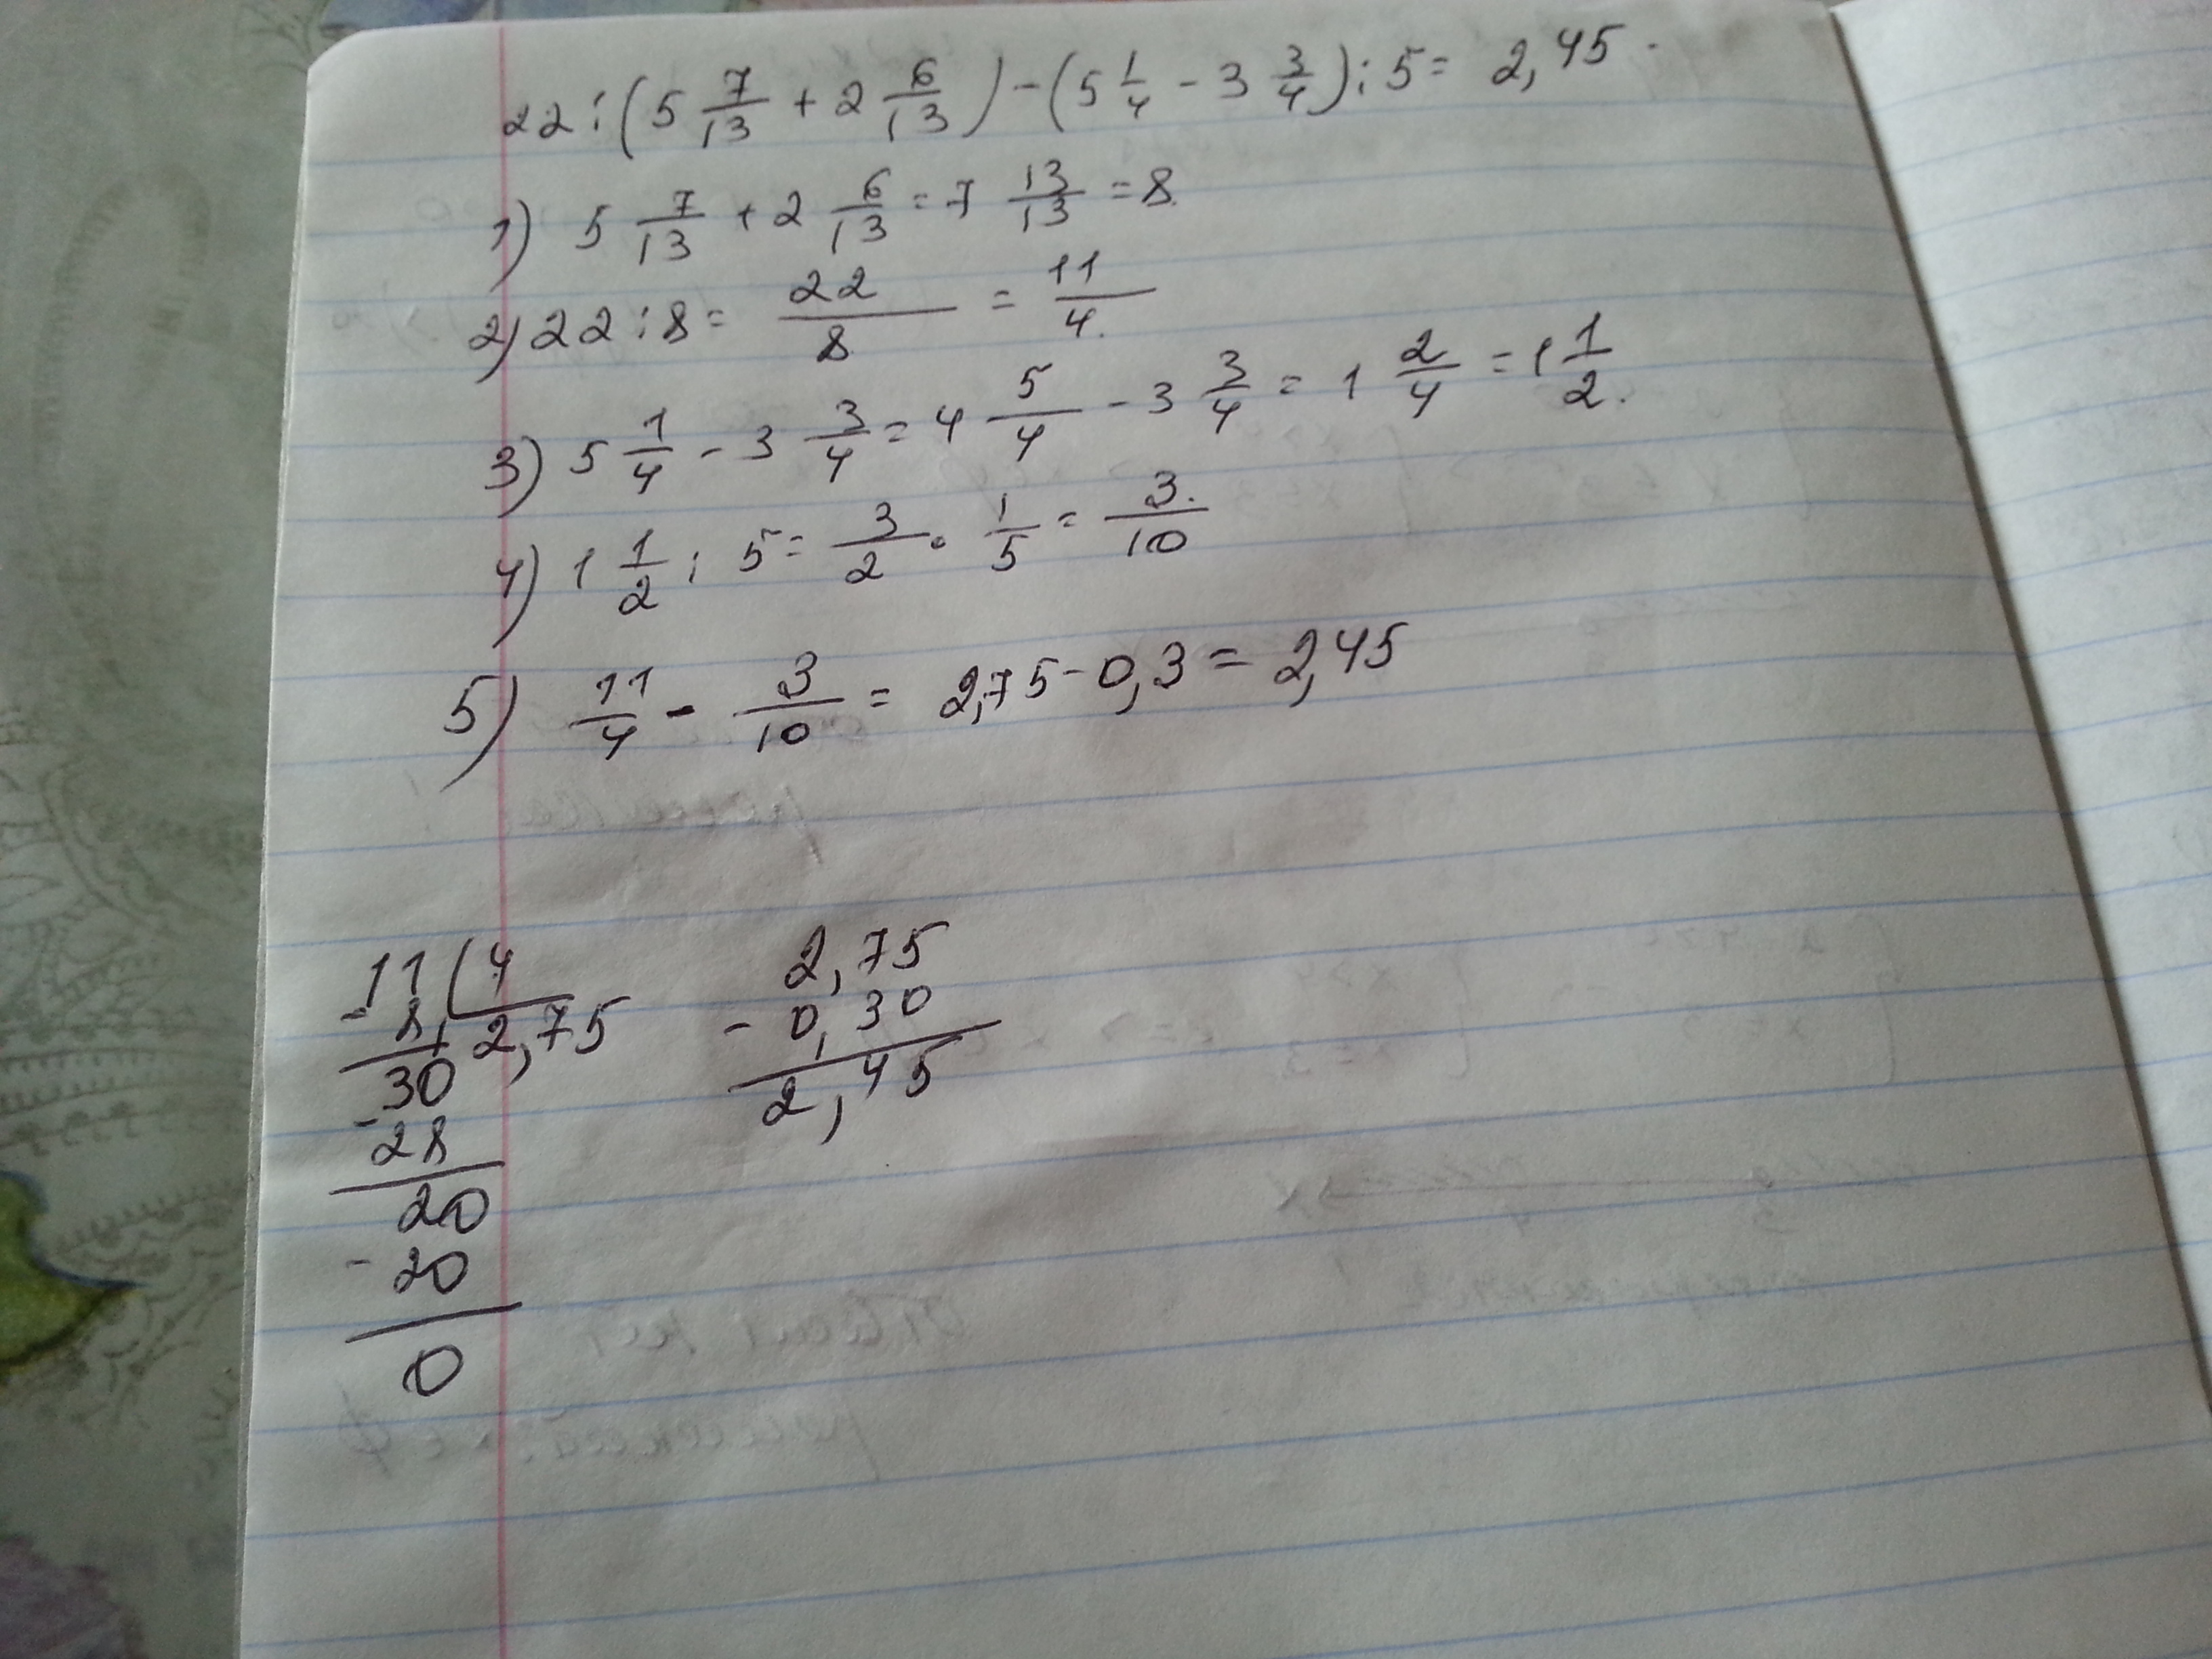 22 : (5 7/13 + 2 6/13) - (5 1/4 - 3 3/4) : 5 = 2,45.
1) 5 7/13 + 2 6/13 = 7 13/13 = 8.
2) 22 : 8 = 22/8 = 11/4.
3) 5 1/4 - 3 3/4 = 4 5/4 - 3 3/4 = 1 2/4 = 1 1/2.
4) 1 1/2 : 5 = 3/2 · 1/5 = 3/10
5) 11/4 - 3/10 = 2,75 - 0,3 = 2,45
11 4
- 8 2,75
30
- 28
20
- 20
0
2,75
- 0,30
2,45